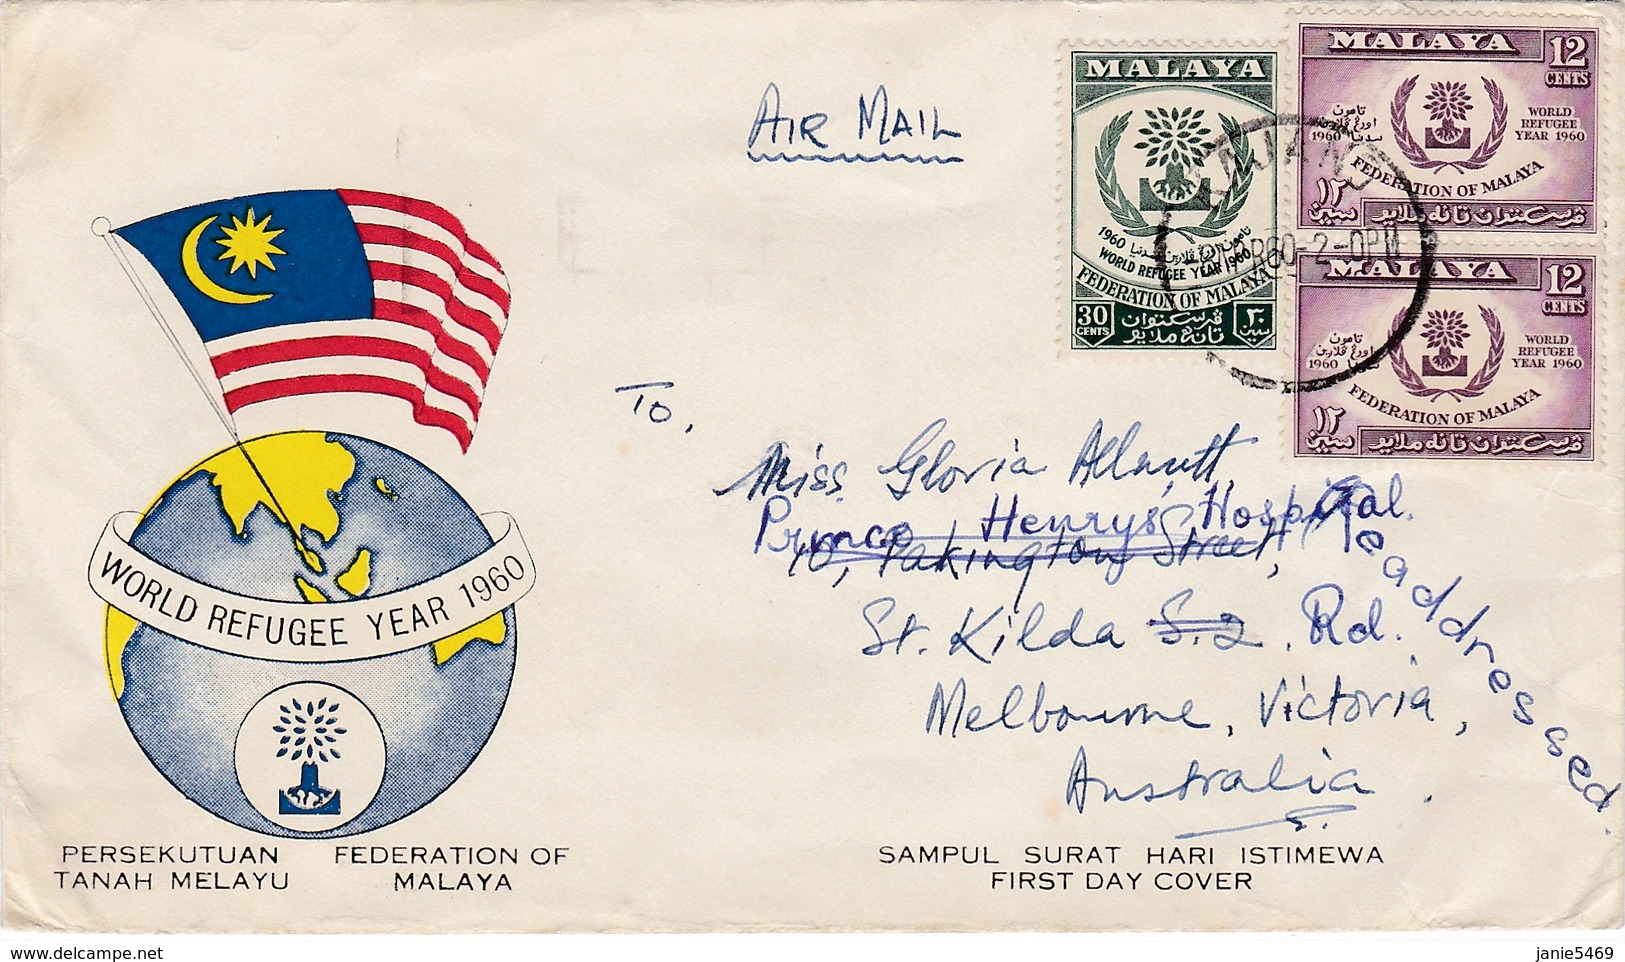 AIR MAIL
MALAYA
1960 تاهون اورڠ ڤلارين سدنيا
WORLD REFUGEE YEAR 1960
FEDERATION OF MALAYA
30
CENTS
ڤرسكتوان
تانه ملايو
٣٠
سين
MALAYA
12
CENTS
تاهون
اورڠ ڤلارين
1960 سدنيا
WORLD
REFUGEE
YEAR 1960
FEDERATION OF MALAYA
١٢
سين
ڤرسكتوان تانه ملايو
MALAYA
12
CENTS
تاهون
اورڠ ڤلارين
1960 سدنيا
WORLD
REFUGEE
YEAR 1960
FEDERATION OF MALAYA
١٢
سين
ڤرسكتوان تانه ملايو
KAJANG
60-2-0PM
To,
Miss. Gloria Allnutt,
Prince Henry's Hospital.
10, Pakington Street,
St. Kilda S.2. Rd.
Melbourne, Victoria,
Australia.
Readdressed.
WORLD REFUGEE YEAR 1960
PERSEKUTUAN FEDERATION OF
TANAH MELAYU MALAYA
SAMPUL SURAT HARI ISTIMEWA
FIRST DAY COVER
janie5469